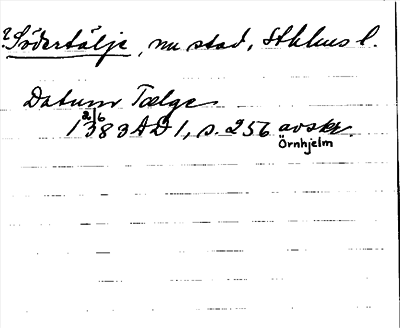 ?Södertälje, nu stad, Sthlms l.
Datum Tælge
2/6
1383 AD 1, s. 256 avskr.
Örnhjelm